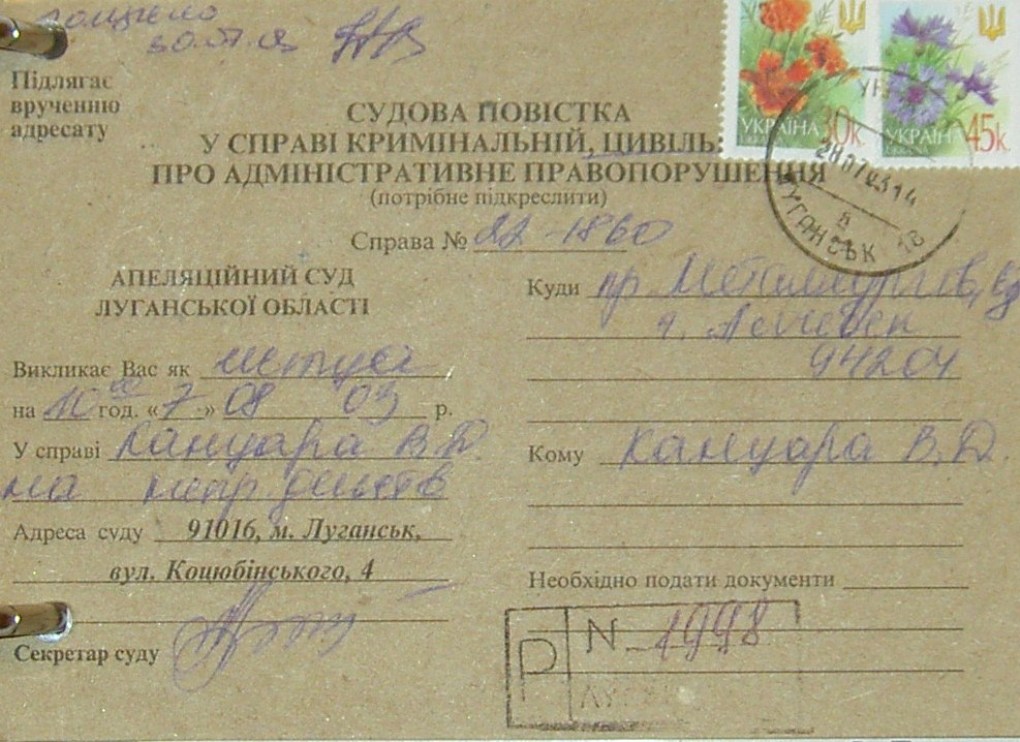 30.07.03
Підлягає
врученню
адресату
УКРАЇНА 30к
УКРАЇНА 45к
28 07 03 14
ЛУГАНСЬК 16
СУДОВА ПОВІСТКА
У СПРАВІ КРИМІНАЛЬНІЙ, ЦИВІЛЬ
ПРО АДМІНІСТРАТИВНЕ ПРАВОПОРУШЕННЯ
(потрібне підкреслити)
Справа № 22-1860
АПЕЛЯЦІЙНИЙ СУД
ЛУГАНСЬКОЇ ОБЛАСТІ
Викликає Вас як
на 10 00 год. «7» 08 03 р.
У справі Канцара В.Д.
на непр.
Адреса суду 91016, м. Луганськ,
вул. Коцюбінського, 4
Секретар суду
Куди пр. Металлургов,
94204
Кому Канцара В.Д.
Необхідно подати документи
Р N 1998